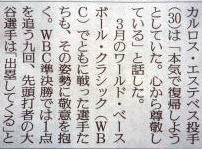 カルロス・エステベス投手
(30)は「本気で復帰しよう
としていた。心から尊敬し
ている」と話した。
　3月のワールド・ベース
ボール・クラシック(WB
C)でともに戦った選手た
ちも、その姿勢に敬意を抱
く。WBC準決勝では1点
を追う九回、先頭打者の大
谷選手は「出塁してくると